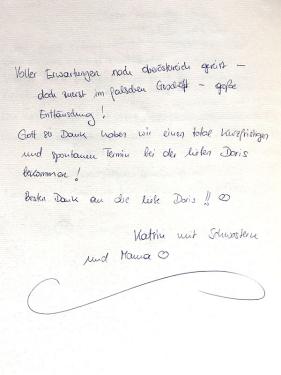 Voller Erwartungen nach Oberösterreich gereist –
doch zuerst im falschen Geschäft – große
Enttäuschung!
Gott sei Dank haben wir einen total kurzfristigen
und spontanen Termin bei der lieben Doris
bekommen!
Besten Dank an die liebe Doris!! ♡
Katrin mit Schwestern
und Mama ♡